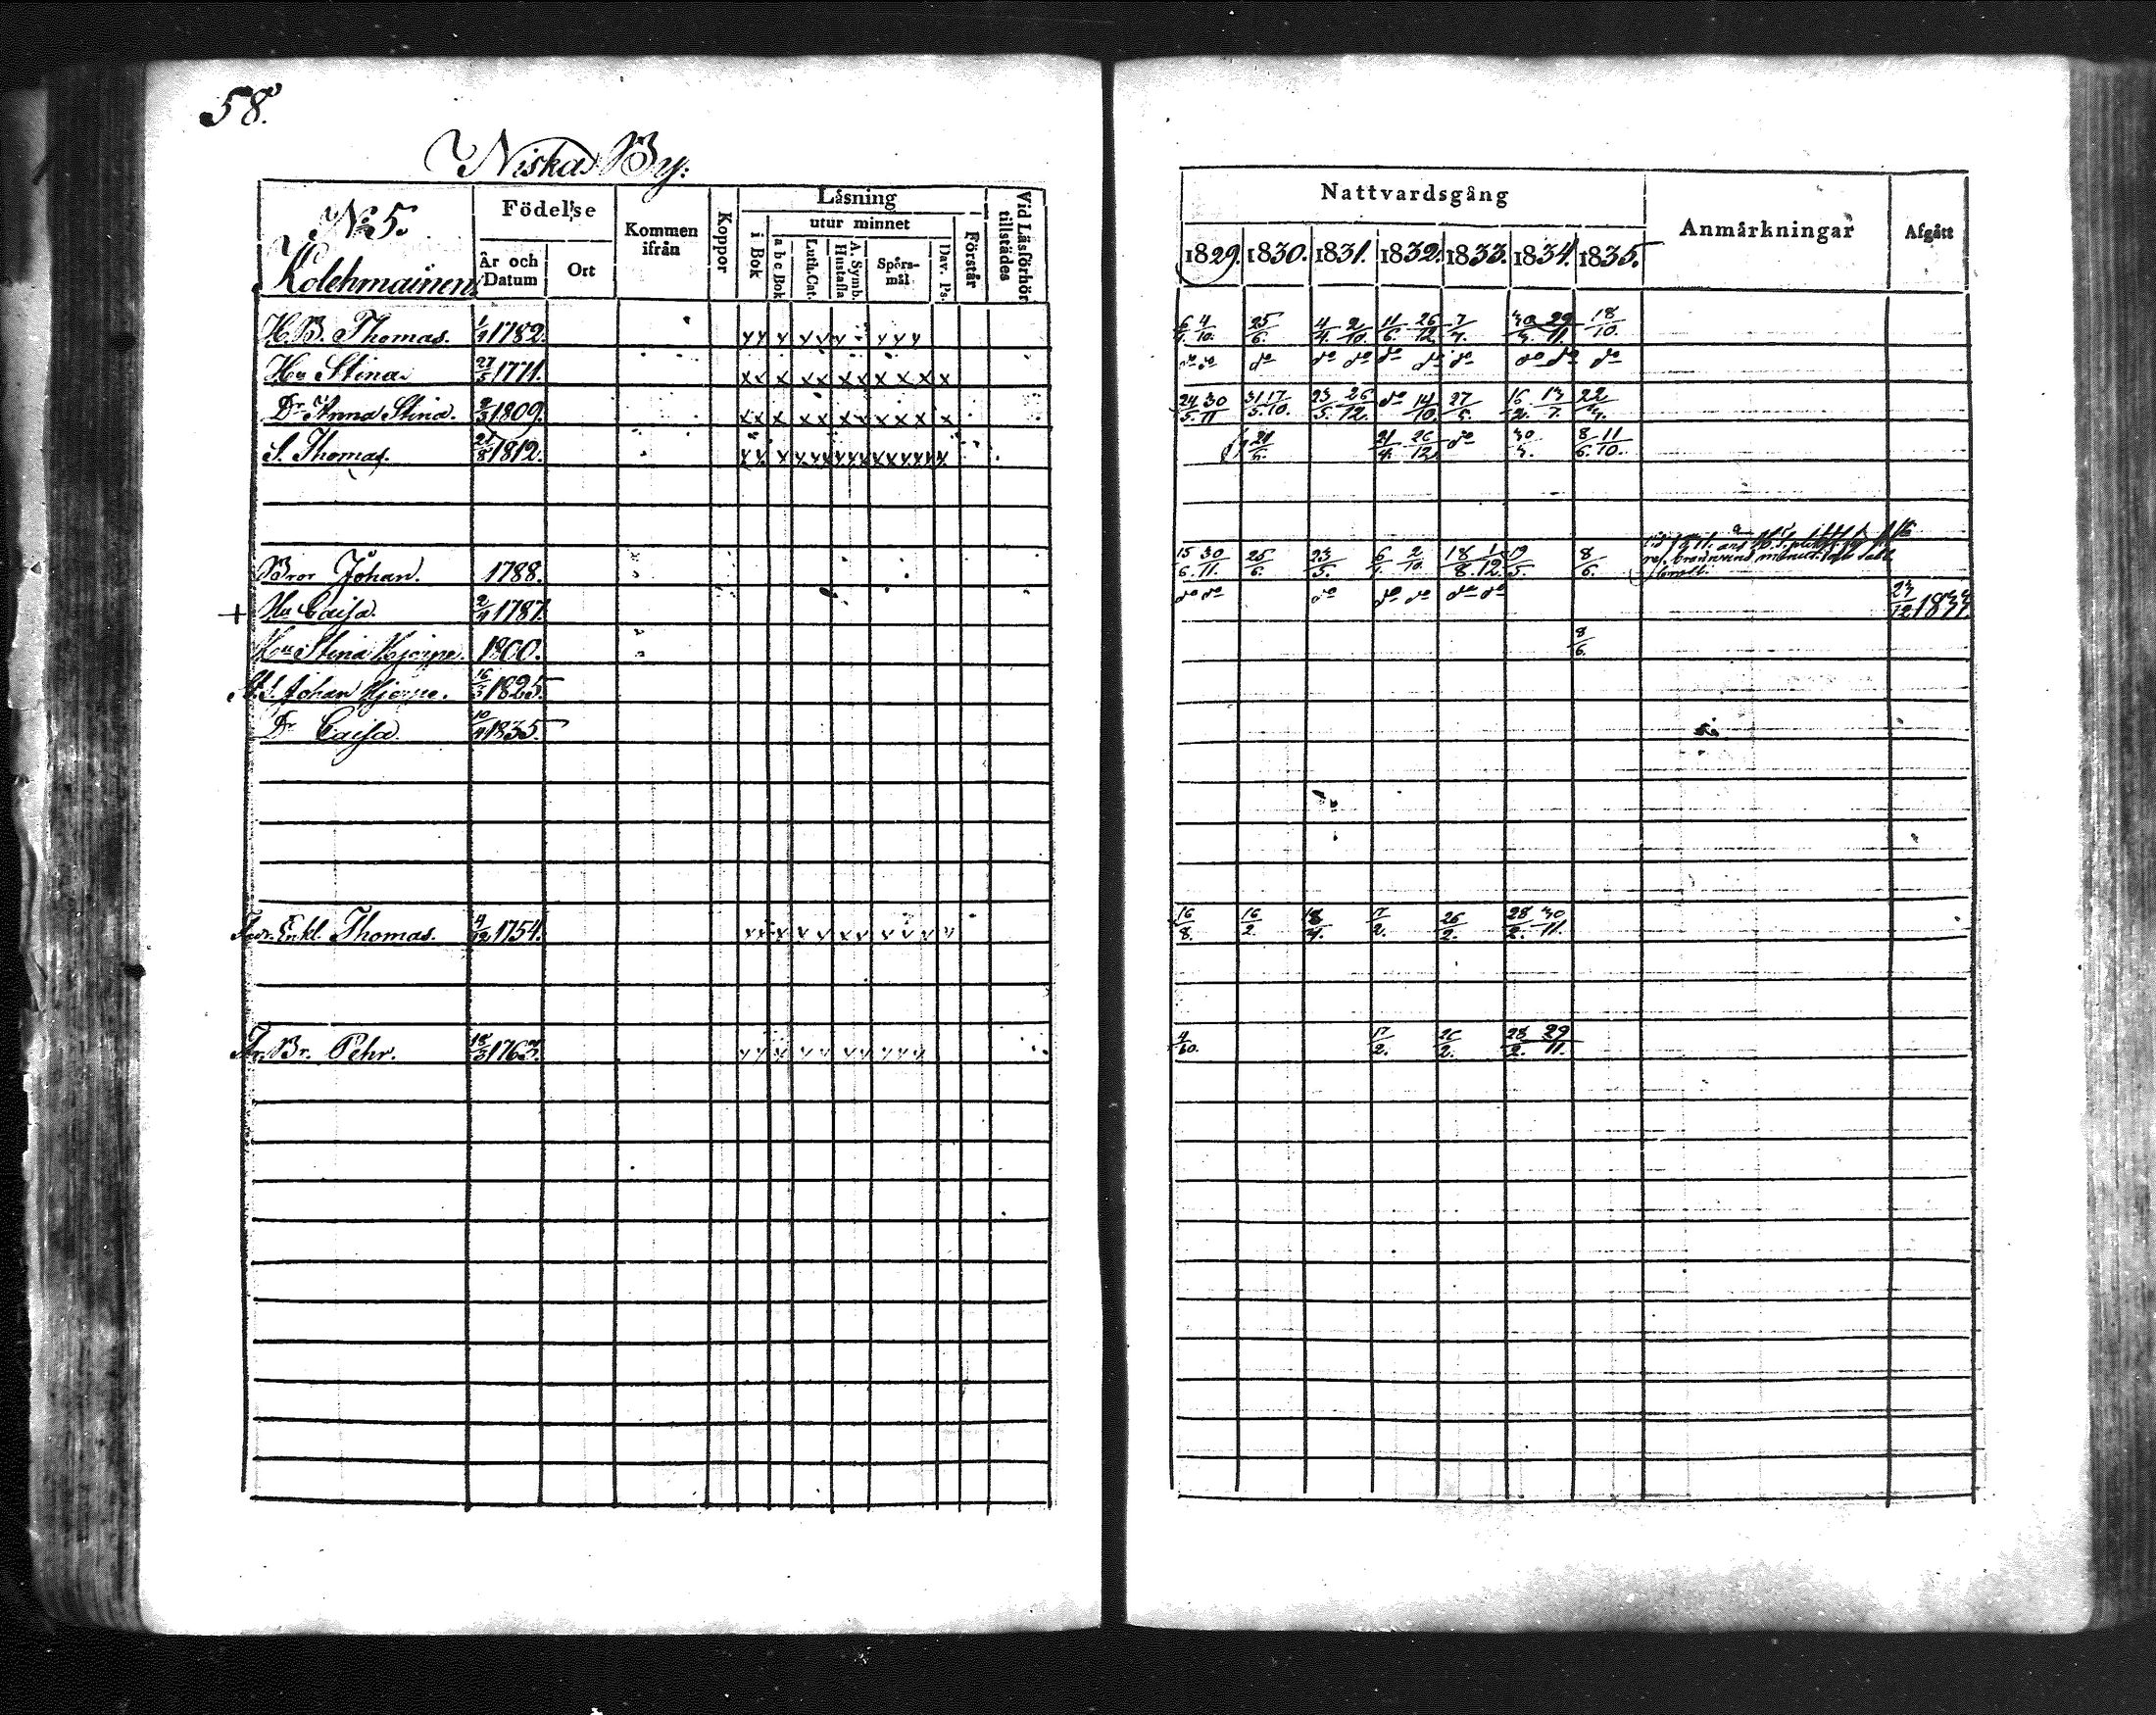 58.
Niska By.
No 5.
Kolehmainen
Födelse
År och Datum
Ort
Kommen ifrån
Koppor
Läsning
i Bok
utur minnet
a b c Bok
Luth. Cat.
A. Symb. Hustafla
Spörsmål
Dav. Ps.
Förstår
Vid Läsförhör tillstädes
H.B. Thomas. 1/4 1782.
Hu Stina 27/5 1771.
Dr Anna Stina. 2/3 1809.
S. Thomas. 21/8 1812.
Bror Johan. 1788.
+ Hu Caisa. 2/4 1787.
Hu Stina Hjerpe. 1800.
S. Johan Hjerpe. 16/3 1825.
Dr Caisa. 10/4 1835.
Enkl. Thomas. 4/12 1754.
Br. Pehr.
Nattvardsgång
Anmärkningar
Afgått
1829. 1830. 1831. 1832. 1833. 1834. 1835.
4/10. 25/6. 4/4. 2/10. 11/6. 26/12 29/11. 18/10.
do do do do do do do do do do do
24/5. 30/11 31/5. 17/10. 23/5. 26/12. do 14/10. 27/5. 16/2. 13/7. 22/4.
21/4. 26/12. do 8/6. 11/10.
15/6. 30/11. 25/6. 23/5. 6/1. 2/10. 18/8. 1/12. 19/5. 8/6.
do do do do do do do 23/12
8/6.
16/8. 16/2. 18/4. 17/2. 26/2. 28/2. 30/11.
4/10. 17/2. 26/2. 28/2. 29/11.